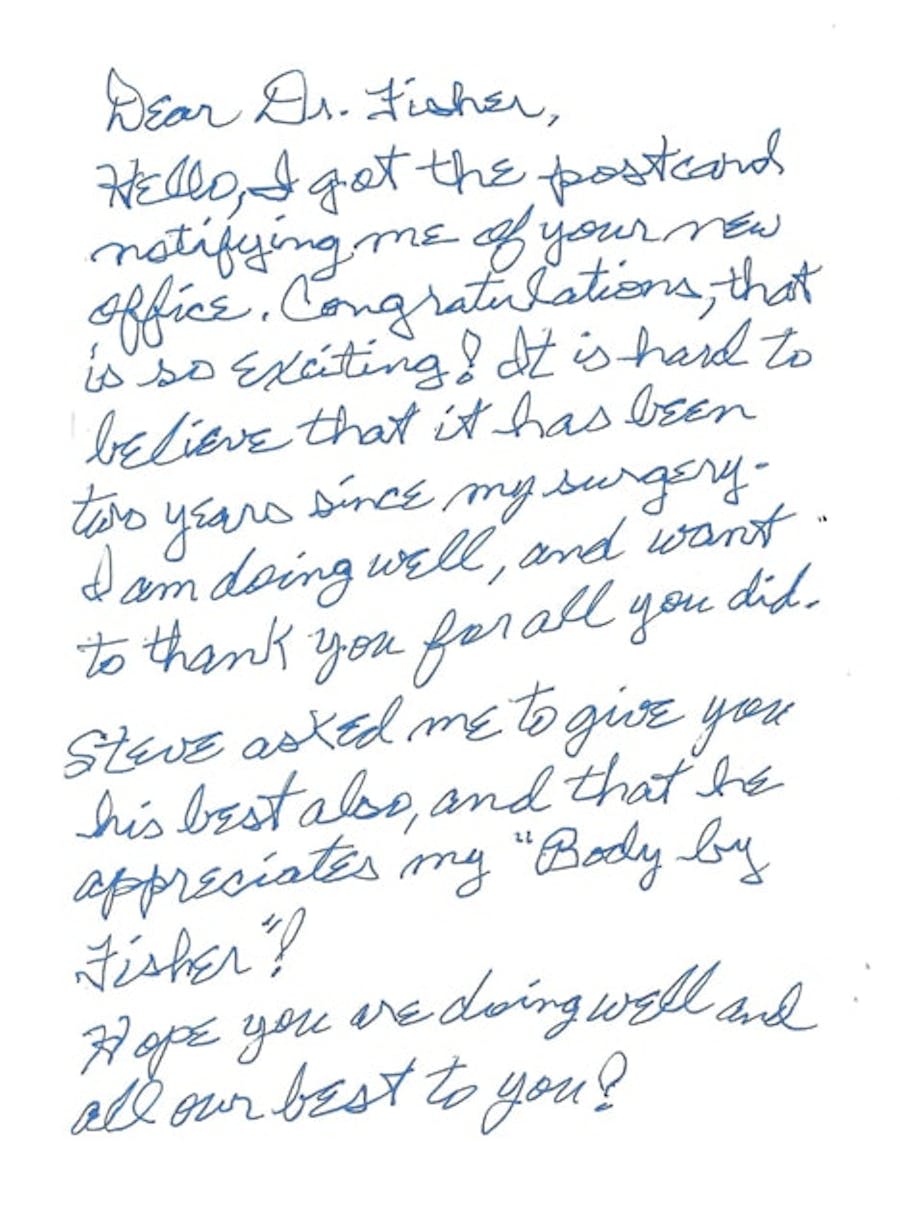 Dear Dr. Fisher,
Hello, I got the postcard
notifying me of your new
office. Congratulations, that
is so exciting! It is hard to
believe that it has been
two years since my surgery.
I am doing well, and want
to thank you for all you did.
Steve asked me to give you
his best also, and that he
appreciates my "Body by
Fisher"!
Hope you are doing well and
all our best to you!